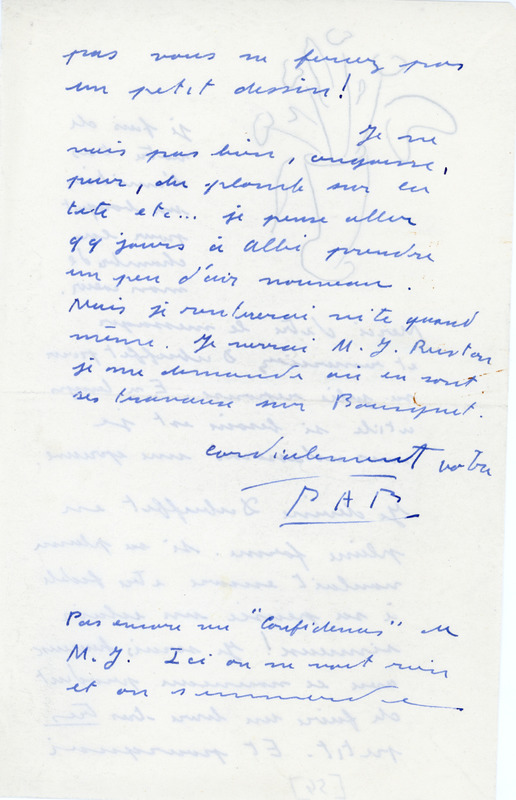 pas vous ne feriez pas
un petit dessin !
Je ne
vais pas bien, angoisse,
peur, du plomb sur la
tête etc... je pense aller
qq jours à Albi prendre
un peu d'air nouveau.
Mais je rentrerai vite quand
même. Je verrai M. J. Rustan
je me demande où en sont
ses travaux sur Bousquet.
cordialement votre
PAB
Pas encore vu "Confidences" de
M. J. Ici on ne voit rien
et on s'emmerde